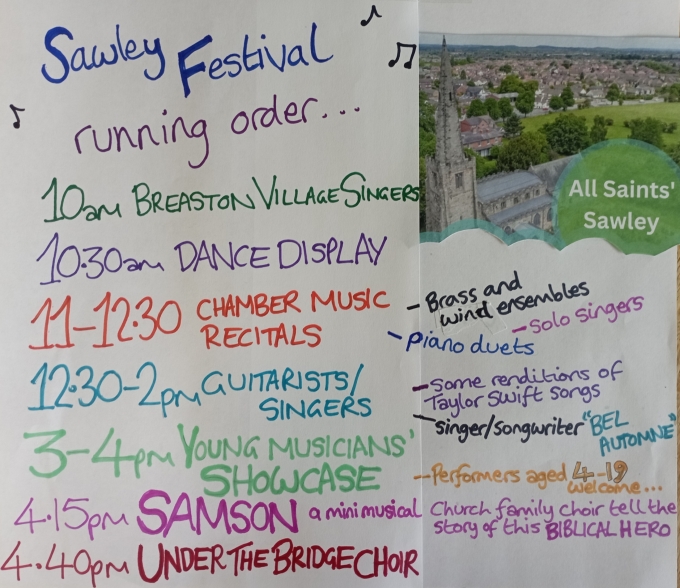 Sawley Festival
running order...
All Saints'
Sawley
10am BREASTON VILLAGE SINGERS
10.30am DANCE DISPLAY
11-12.30 CHAMBER MUSIC
RECITALS
- Brass and
wind ensembles
- solo singers
- piano duets
12.30-2pm GUITARISTS/
SINGERS
- some renditions of
Taylor Swift songs
- singer/songwriter "BEL
AUTOMNE"
3-4pm YOUNG MUSICIANS'
SHOWCASE
- Performers aged 4-19
welcome...
4.15pm SAMSON a mini musical
Church family choir tell the
story of this BIBLICAL HERO
4.40pm UNDER THE BRIDGE CHOIR